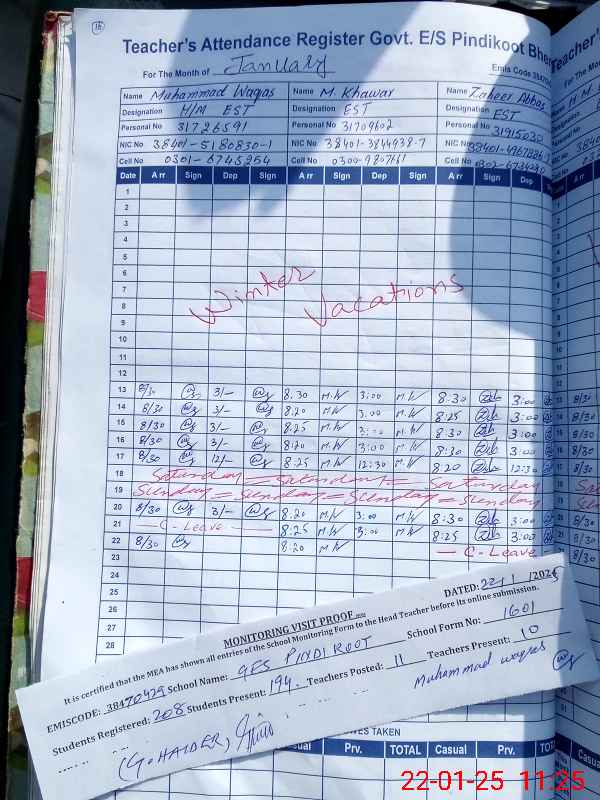 16
Teacher's Attendance Register Govt. E/S Pindikoot Bhe
For The Month of January Emis Code 384704
Name Muhammad Waqas Name M. Khawar Name Zaheer Abbas
Designation H/M EST Designation EST Designation EST
Personal No 31726591 Personal No 31709602 Personal No 31915030
NIC No 38401-5180830-1 NIC No 38401-3844938-7 NIC No
Cell No 0301-6745254 Cell No 0300-9807661 Cell No
Date A rr Sign Dep Sign A rr Sign Dep Sign A rr Sign Dep
1
2
3
4
5
6
7
8
9
10
11
12
Winter Vacations
13 8/30 3/- 8.30 M.K 3:00 M.K 8:30 3:00
14 8/30 3/- 8:20 M.K 3:00 M.K 8:25 3:00
15 8/30 3/- 8:25 M.K 3:00 M.K 8:30 3:00
16 8/30 3/- 8:20 M.K 3:00 M.K 8:30 3:00
17 8/30 12/- 8:25 M.K 12:30 M.K 8:20 12:30
18 Saturday = Saturday = Saturday
19 Sunday = Sunday = Sunday = Sunday
20 8/30 3/- 8:20 M.K 3:00 M.K 8:30 3:00
21 C-Leave 8:25 M.K 3:00 M.K 8:25 3:00
22 8/30 8:20 M.K C-Leave
23
24
25
26
27
28
MONITORING VISIT PROOF DATED: 22/1/2025
It is certified that the MEA has shown all entries of the School Monitoring Form to the Head Teacher before its online submission.
EMISCODE: 38470429 School Name: GES PINDI KOOT School Form No: 1601
Students Registered: 208 Students Present: 194. Teachers Posted: 11 Teachers Present: 10
(G. HAIDER, Muhammad waqas
TAKEN
Prv. TOTAL Casual Prv.
22-01-25 11:25